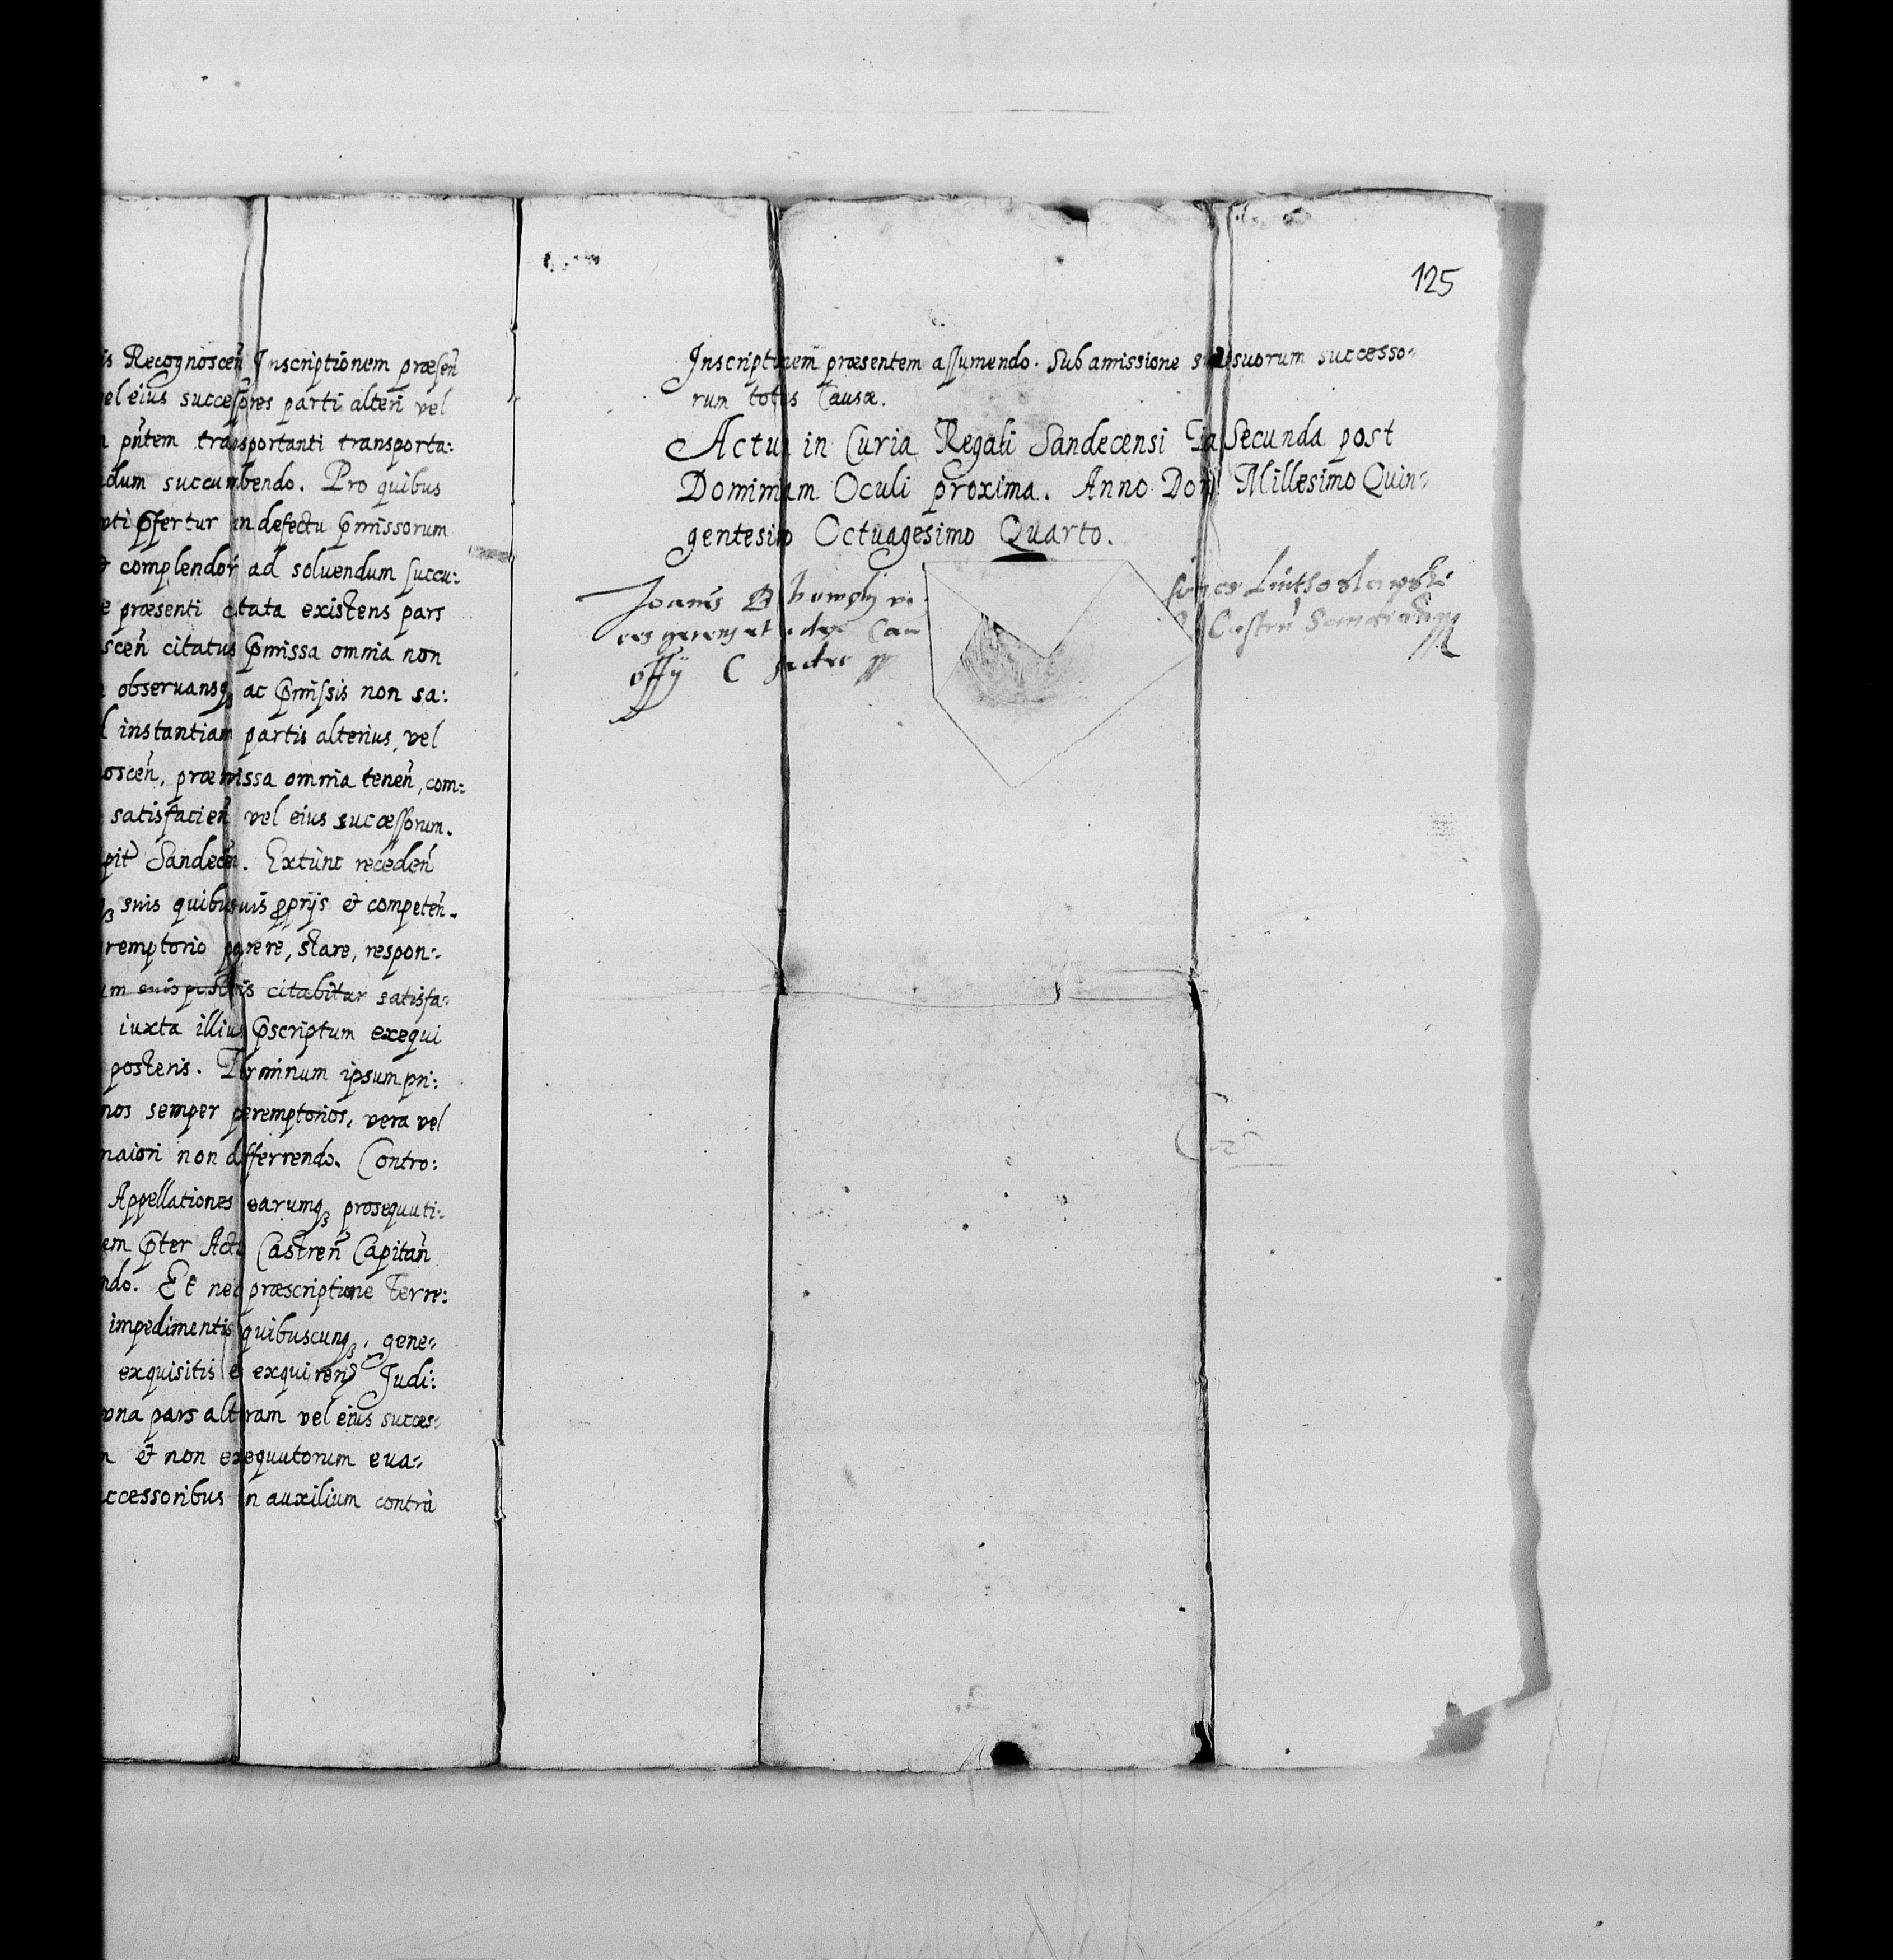 is Recognosceñ Inscriptionem præseñ
vel eius successores parti alteri vel
pñtem transportanti transporta:
dum succumbendo. Pro quibus
pfertur in defectu pmissorum
complendoŕ ad soluendum succu:
præsenti citata existens pars
sceñ citatus pmissa omnia non
obseruansq; ac pmissis non sa:
instantiam partis alterius, vel
osceñ, præmissa omnia teneñ, com:
satisfacieñ vel eius successorum.
pit Sandeceñ. Extunc recedeñ
q; suis quibusuis pprijs & competeñ.
remptorio parere, stare, respon:
citabitur satisfa:
iuxta illius pscriptum exequi
posteris. Terminum ipsum pri:
nos semper peremptorios, vera vel
maiori non differrendo. Contro:
Appellationes earumq; prosequuti:
em pter Acta Castreñ Capitañ
ndo. Et nec præscriptione Terre:
impedimentis quibuscunq;, gene:
exquisitis et exquireñ Judi:
vna pars alteram vel eius succes:
& non exequutorum eua:
ccessoribus in auxilium contra
125
Inscriptionem præsentem assumendo. Sub amissione suorum successo:
rum totius Causæ.
Actum in Curia Regali Sandecensi Fia Secunda post
Dominicam Oculi proxima. Anno Doñi Millesimo Quin:
gentesimo Octuagesimo Quarto.
Joanes
ces gerens et Cau
offij C
Castreñ